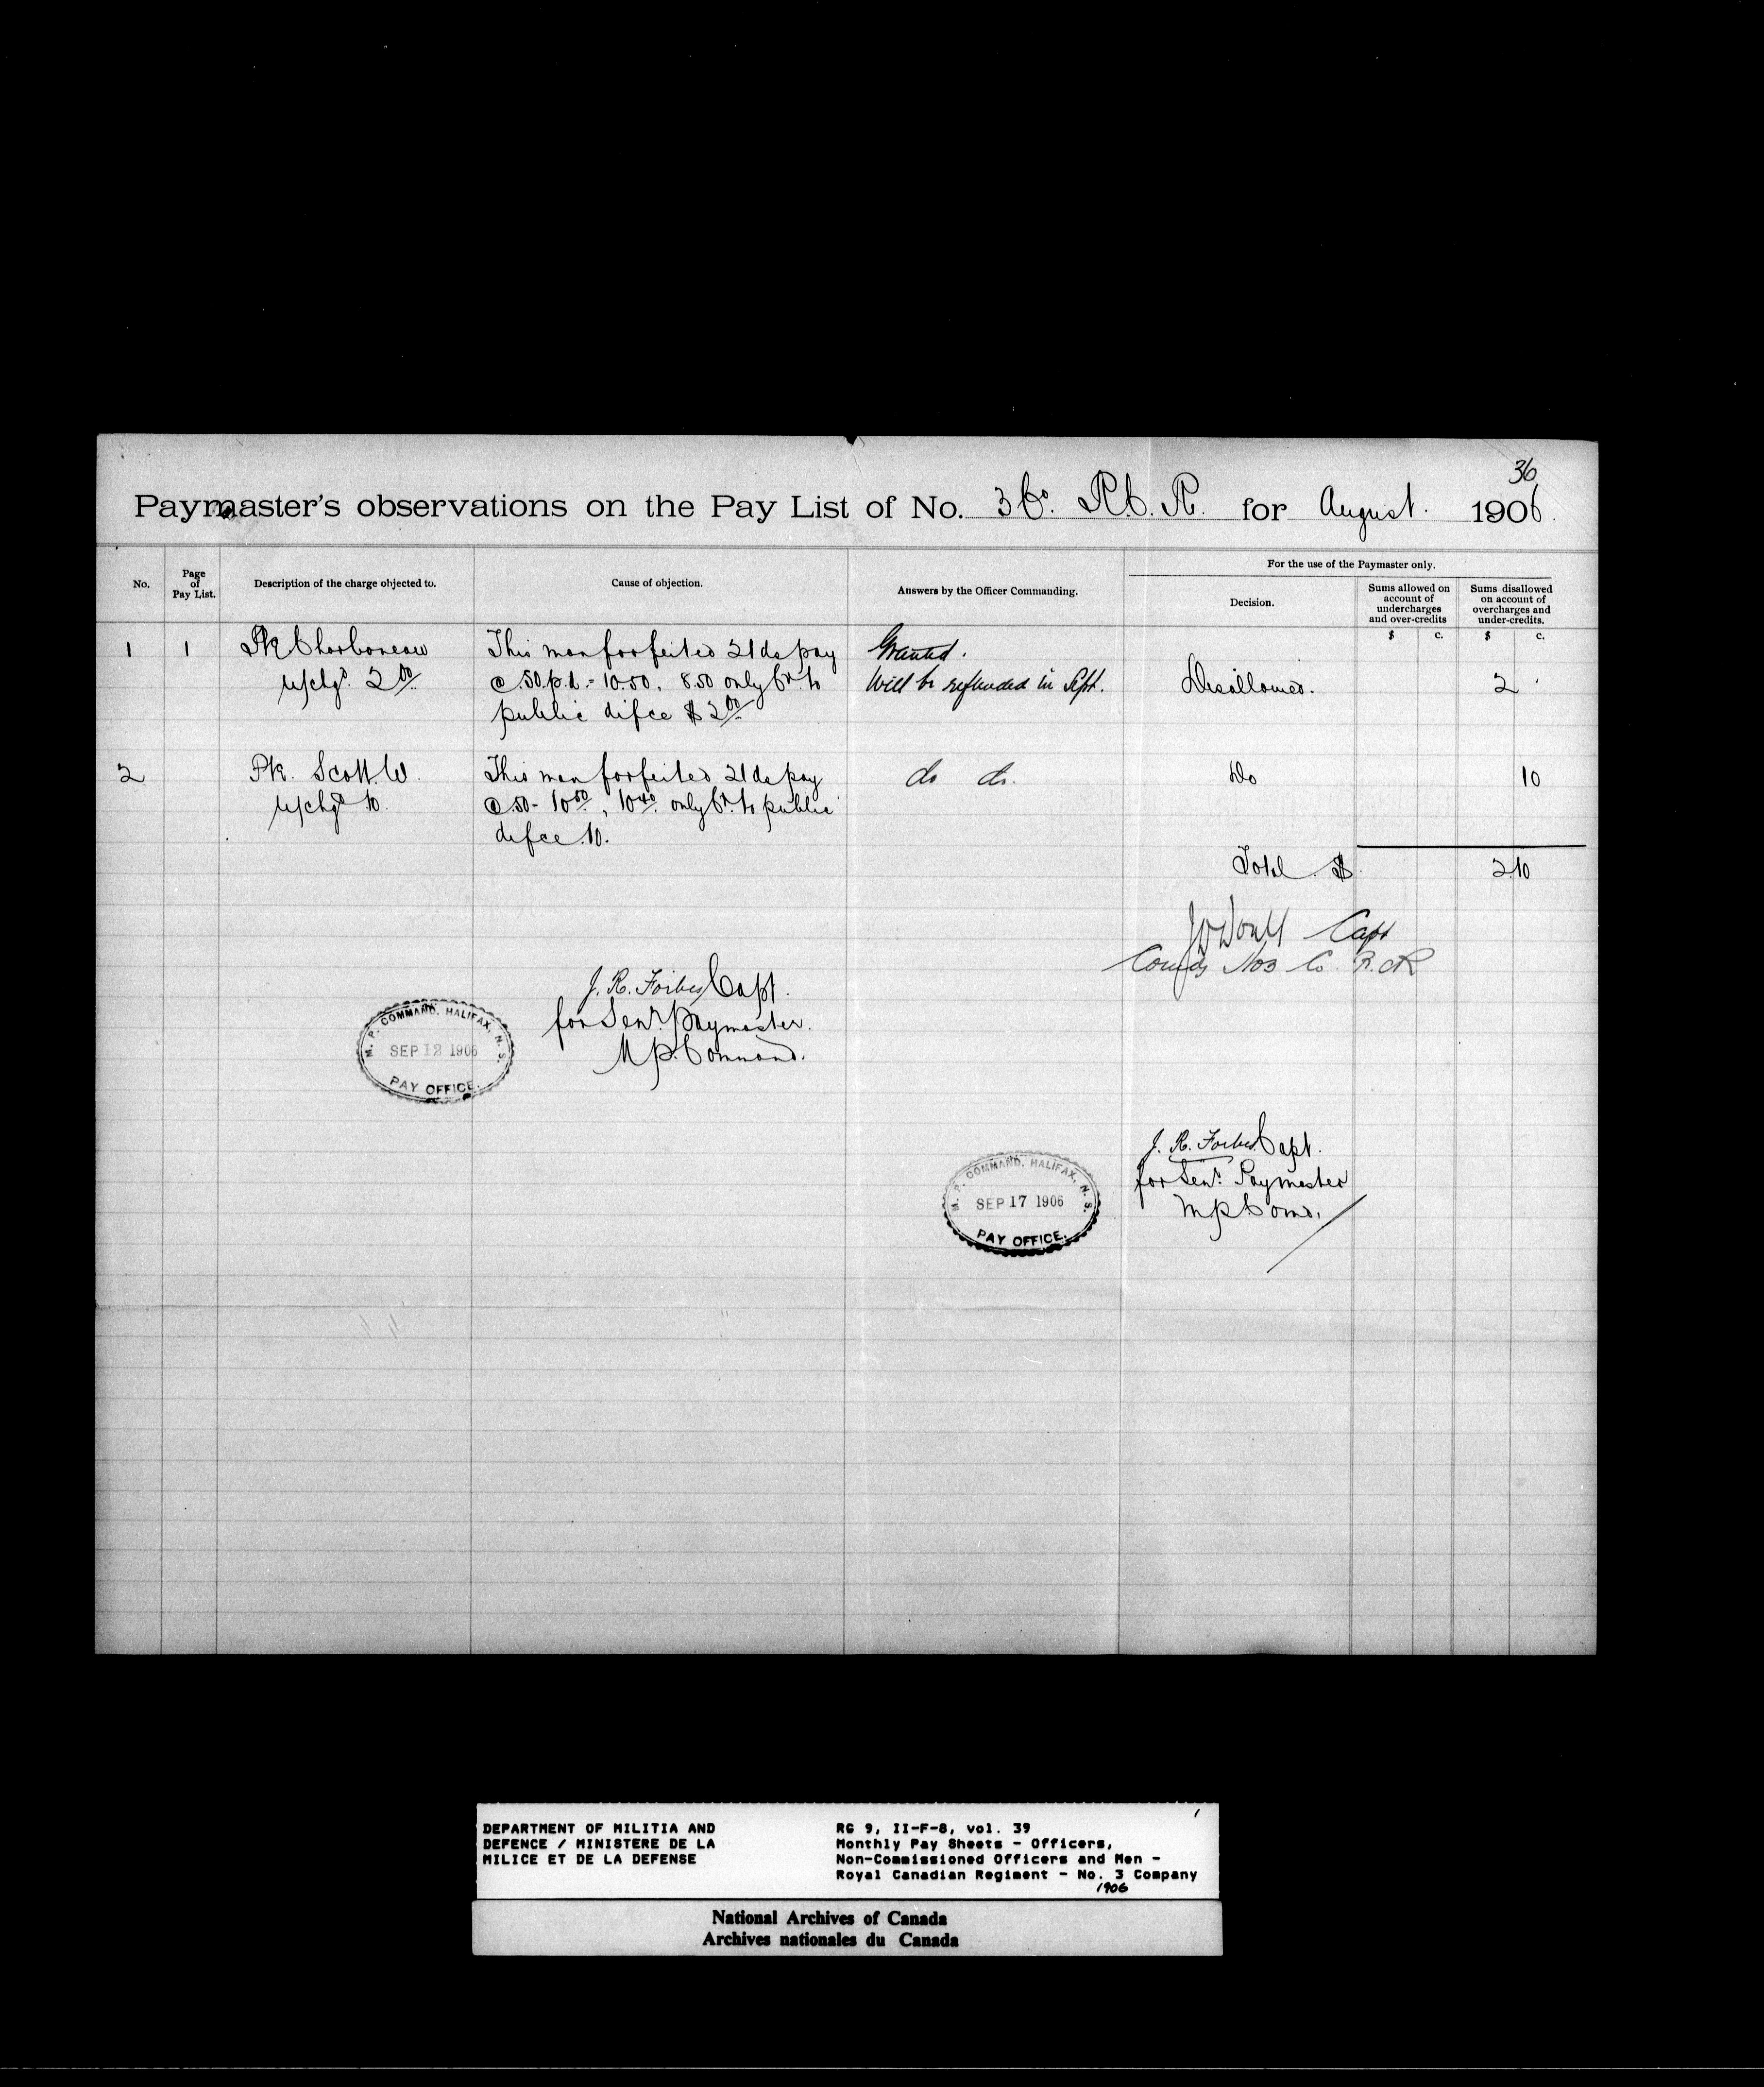 36
Paymaster's observations on the Pay List of No. 3 Co. R.C.R. for August. 1906.
For the use of the Paymaster only.
No.
Page of Pay List.
Description of the charge objected to.
Cause of objection.
Answers by the Officer Commanding.
Decision.
Sums allowed on account of undercharges and over-credits
Sums disallowed on account of overcharges and under-credits.
$ c. $ c.
1 1 Pte Charboneau This man forfeited 21 ds pay Granted.
u/chgd. 2.00 @ .50 p.d. = 10.50, 8.50 only Cr. to Will be refunded in Sept. Disallowed. 2
public difce $ 2.00
2 Pte. Scott. W. This man forfeited 21 ds pay do do. Do 10
u/chgd 10. @ 50 - 10.50, 10.40 only Cr. to public
difce .10.
Total $ 2.10
Capt
Comdg No 3 Co. R.C.R
J. R. Forbes Capt.
for Senr. Paymaster.
M P. Command.
M. P. COMMAND, HALIFAX, N. S.
SEP 12 1906
PAY OFFICE.
J. R. Forbes Capt.
for Senr. Paymaster
M P Comd.
M. P. COMMAND, HALIFAX, N. S.
SEP 17 1906
PAY OFFICE.
DEPARTMENT OF MILITIA AND
DEFENCE / MINISTERE DE LA
MILICE ET DE LA DEFENSE
RG 9, II-F-8, vol. 39
Monthly Pay Sheets - Officers,
Non-Commissioned Officers and Men -
Royal Canadian Regiment - No. 3 Company
1906
National Archives of Canada
Archives nationales du Canada